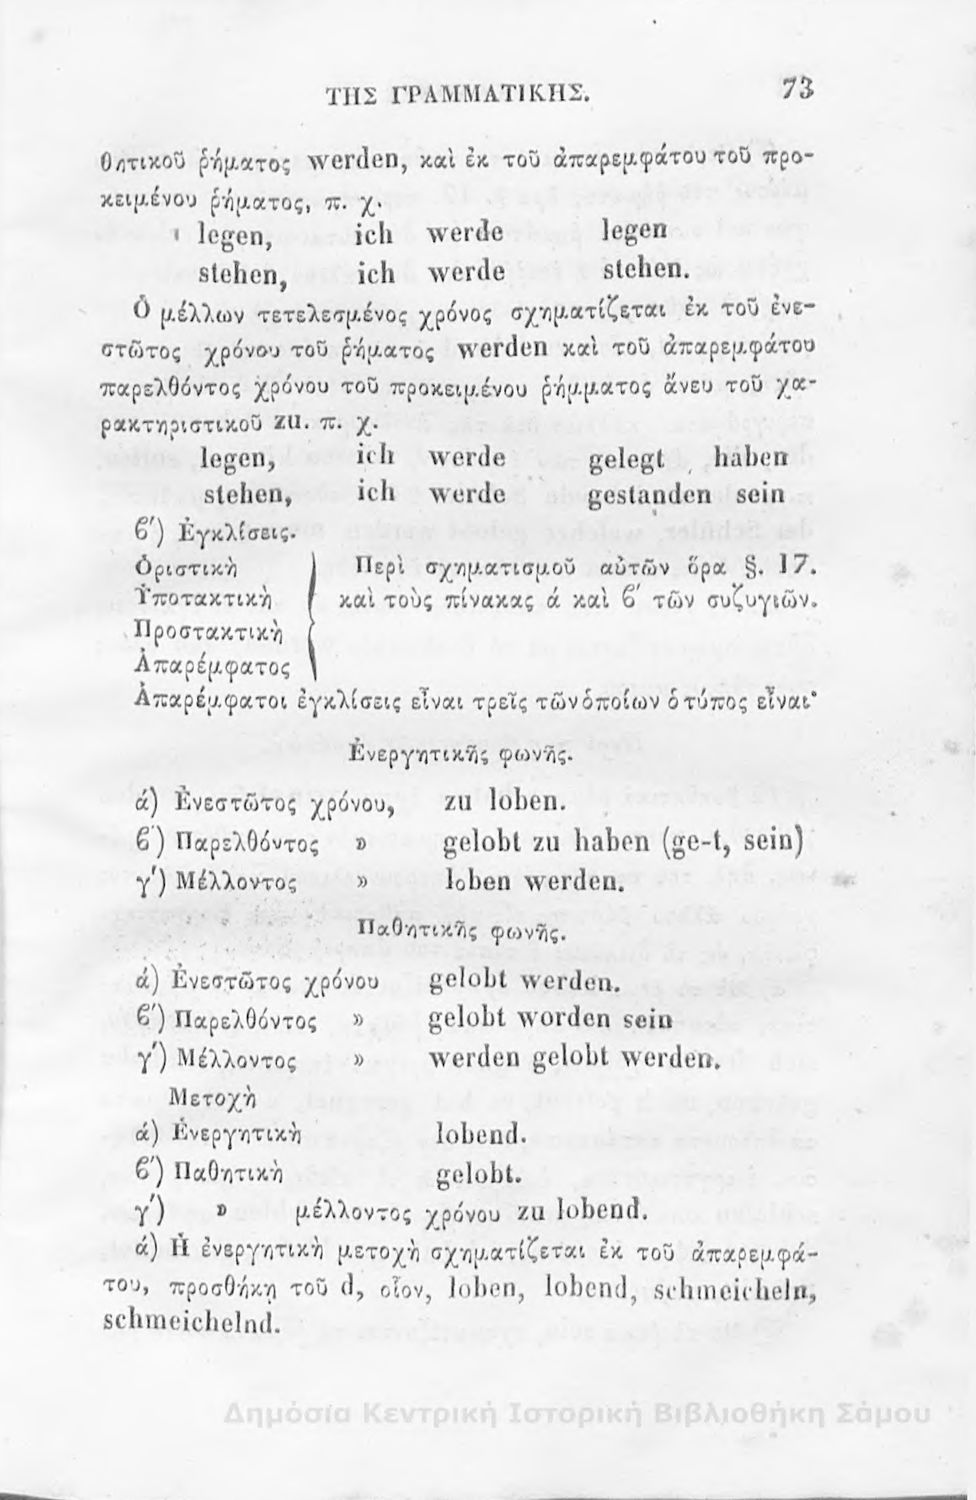 ΤΗΣ ΓΡΑΜΜΑΤΙΚΗΣ. 73
θητικοῦ ῥήματος werden, καὶ ἐκ τοῦ ἀπαρεμφάτου τοῦ προ-
κειμένου ῥήματος, π. χ.
legen, ich werde legen
stehen, ich werde stehen.
Ὁ μέλλων τετελεσμένος χρόνος σχηματίζεται ἐκ τοῦ ἐνε-
στῶτος χρόνου τοῦ ῥήματος werden καὶ τοῦ ἀπαρεμφάτου
παρελθόντος χρόνου τοῦ προκειμένου ῥήμματος ἄνευ τοῦ χα-
ρακτηριστικοῦ zu. π. χ.
legen, ich werde gelegt haben
stehen, ich werde gestanden sein
ϐ′) Ἐγκλίσεις.
Ὁριστικὴ Περὶ σχηματισμοῦ αὐτῶν ὅρα §. 17.
Ὑποτακτικὴ καὶ τοὺς πίνακας ά καὶ ϐ′ τῶν συζυγιῶν.
Προστακτικὴ
Ἀπαρέμφατος
Ἀπαρέμφατοι ἐγκλίσεις εἶναι τρεῖς τῶν ὁποίων ὁ τύπος εἶναι·
Ἐνεργητικῆς φωνῆς.
ά) Ἐνεστῶτος χρόνου, zu loben.
ϐ′) Παρελθόντος » gelobt zu haben (ge-t, sein)
γ′) Μέλλοντος » loben werden.
Παθητικῆς φωνῆς.
ά) Ἐνεστῶτος χρόνου gelobt werden.
ϐ′) Παρελθόντος » gelobt worden sein
γ′) Μέλλοντος » werden gelobt werden.
Μετοχὴ
ά) Ἐνεργητικὴ lobend.
ϐ′) Παθητικὴ gelobt.
γ′) » μέλλοντος χρόνου zu lobend.
ά) Ἡ ἐνεργητικὴ μετοχὴ σχηματίζεται ἐκ τοῦ ἀπαρεμφά-
του, προσθήκῃ τοῦ d, οἷον, loben, lobend, schmeicheln,
schmeichelnd.
Δημόσια Κεντρική Ιστορική Βιβλιοθήκη Σάμου